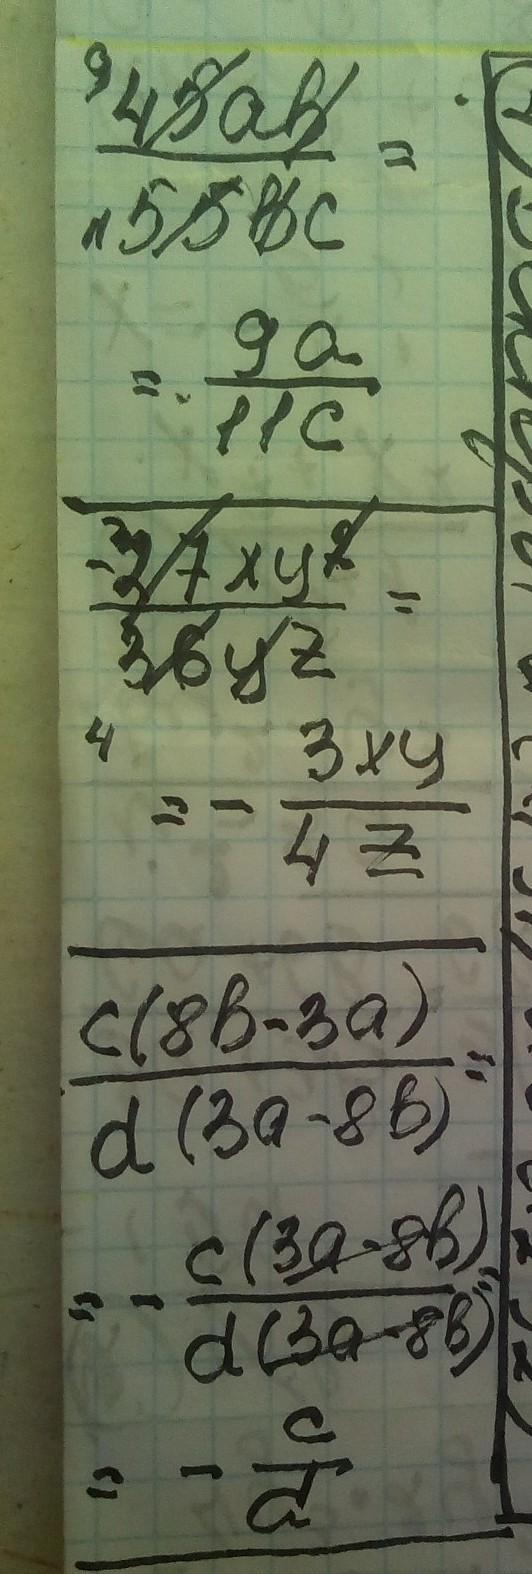 9 45ab / 11 55bc =
= 9a / 11c
-3 27xy² / 36yz =
4
= - 3xy / 4z
c(8b-3a) / d(3a-8b) =
= - c(3a-8b) / d(3a-8b) =
= - c / d